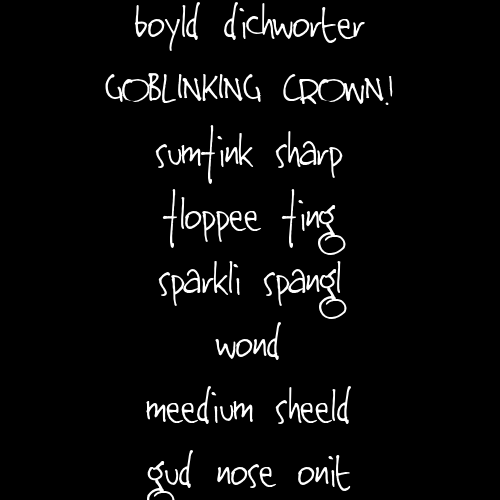 boyld dichworter
GOBLINKING CROWN!
sumfink sharp
floppee fing
sparkli spangl
wond
meedium sheeld
gud nose onit